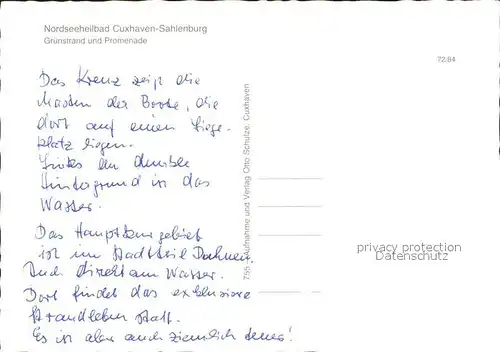 Nordseeheilbad Cuxhaven-Sahlenburg
Grünstrand und Promenade
72/84
Das Kreuz zeigt die
Masten der Boote, die
dort auf einen Liege-
platz liegen.
Links der dunkle
Hintergrund ist das
Wasser.
Das Hauptkurgebiet
ist im Stadtteil Duhnen.
Auch direkt am Wasser.
Dort findet das exklusive
Strandleben statt.
Es ist aber auch ziemlich teuer!
755 Aufnahme und Verlag Otto Schulze, Cuxhaven
privacy protection
Datenschutz